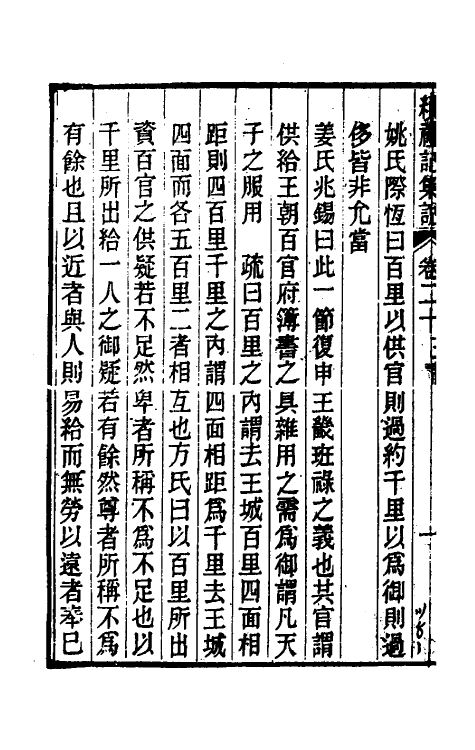 禮記集說 卷二十五 一
姚氏際恆曰百里以供官則過約千里以為御則過
侈皆非允當
姜氏兆錫曰此一節復申王畿班祿之義也其官謂
供給王朝百官府簿書之具雜用之需為御謂凡天
子之服用　疏曰百里之內謂去王城百里四面相
距則四百里千里之內謂四面相距為千里去王城
四面而各五百里二者相互也方氏曰以百里所出
資百官之供疑若不足然卑者所稱不為不足也以
千里所出給一人之御疑若有餘然尊者所稱不為
有餘也且以近者與人則易給而無勞以遠者奉已